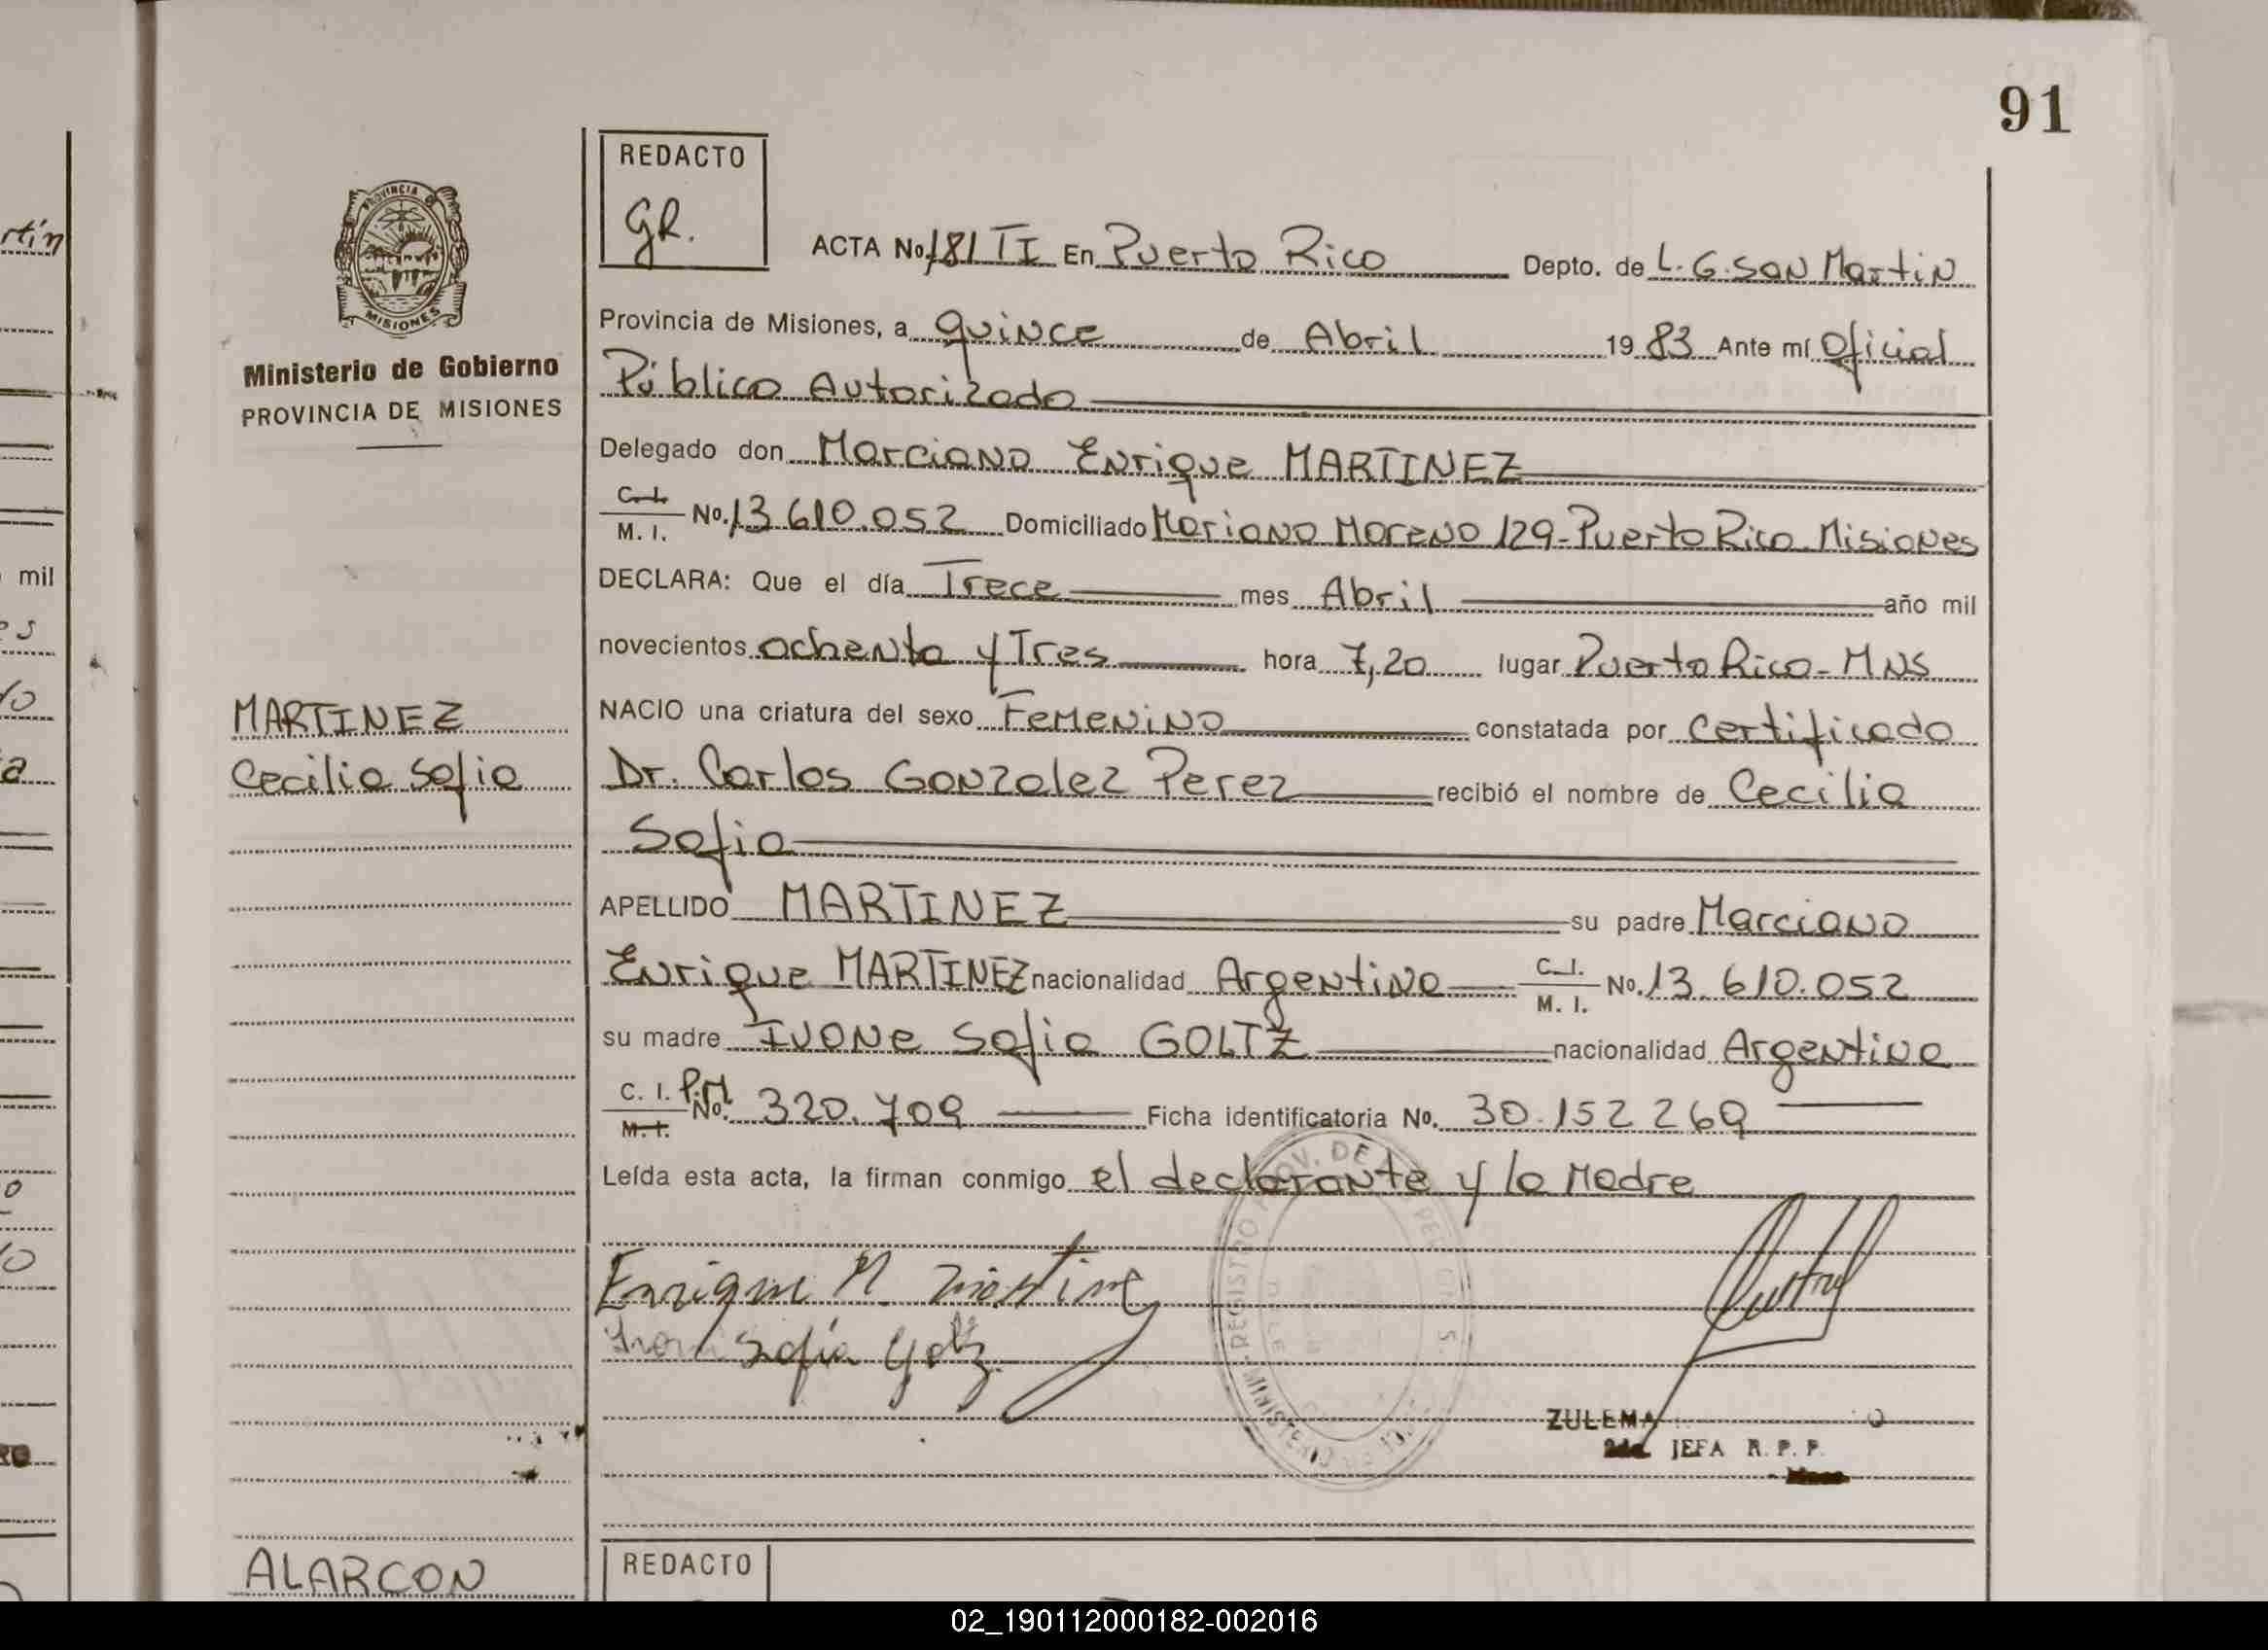 91
REDACTO
GR.
ACTA No. 181 TI En Puerto Rico Depto. de L. G. SAN Martin
Provincia de Misiones, a quince de Abril 19 83 Ante mí Oficial
Público Autorizado
Delegado don Marciano Enrique MARTINEZ
C. I. M. I. No. 13 610.052 Domiciliado Mariano Moreno 129-Puerto Rico Misiones
DECLARA: Que el día Trece mes Abril año mil
novecientos ochenta y Tres hora 7,20 lugar Puerto Rico-MNS
NACIO una criatura del sexo Femenino constatada por Certificado
Dr. Carlos Gonzalez Perez recibió el nombre de Cecilia
Sofia
APELLIDO MARTINEZ su padre Marciano
Enrique MARTINEZ nacionalidad Argentina C. I. M. I. No. 13.610.052
su madre IVONE Sofia GOLTZ nacionalidad Argentina
C. I. M. I. P.M No. 320.709 Ficha identificatoria No. 30.152 269
Leída esta acta, la firman conmigo el declarante y la Madre
Enrique M. Martinez
Sofía Goltz
ZULEMA
2da. JEFA R. P. P.
PROVINCIA DE
MISIONES
Ministerio de Gobierno
PROVINCIA DE MISIONES
MARTINEZ
Cecilia Sofia
ALARCON
REDACTO
rtín
mil
es
02_190112000182-002016